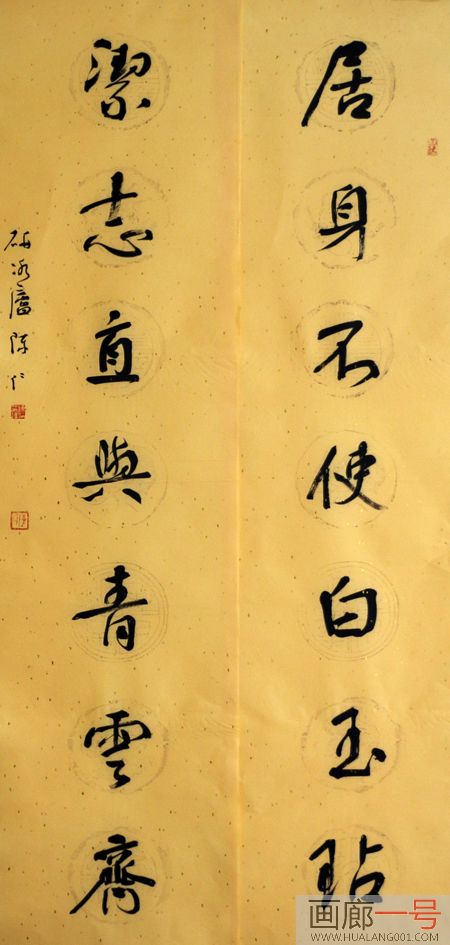 居身不使白玉玷
潔志直與青雲齊
冰廬陳仁
画廊一号
WWW.HUALANG001.COM